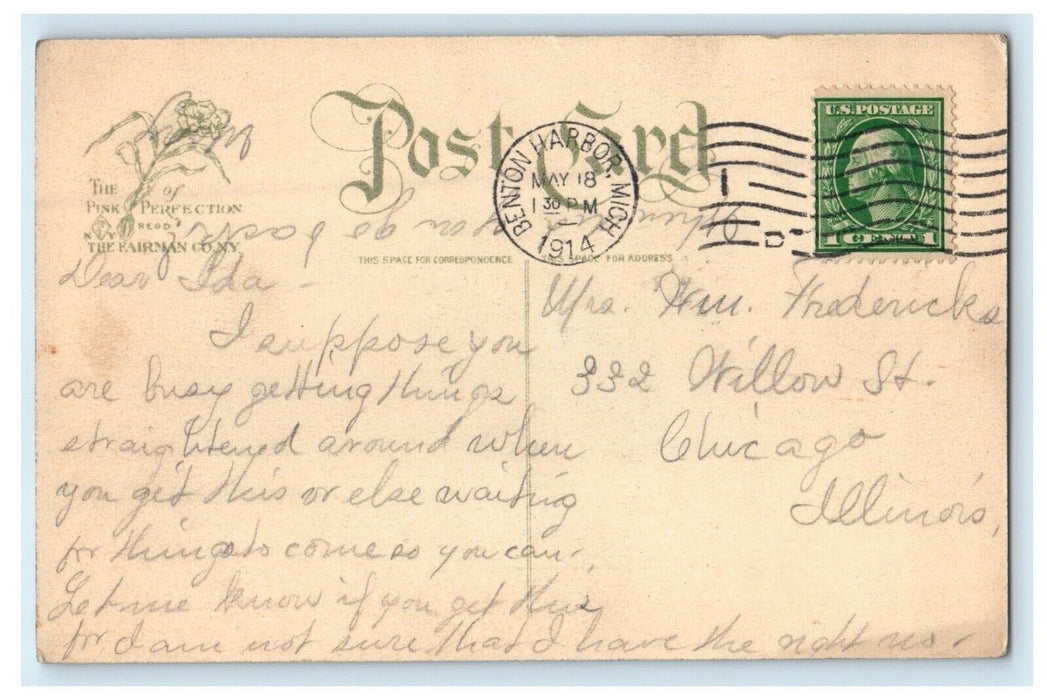 Post Card
THE of
PINK PERFECTION
REGD
THE FAIRMAN CO. N.Y.
THIS SPACE FOR CORRESPONDENCE
THIS SPACE FOR ADDRESS
BENTON HARBOR, MICH.
MAY 18
1 30 P M
1914
U.S. POSTAGE
1 CENT 1
Dear Ida -
I suppose you
are busy getting things
straightened around when
you get this or else waiting
for things to come so you can.
Let me know if you get this
for I am not sure that I have the right no.
Mrs. Wm. Fredericks
332 Willow St.
Chicago
Illinois,